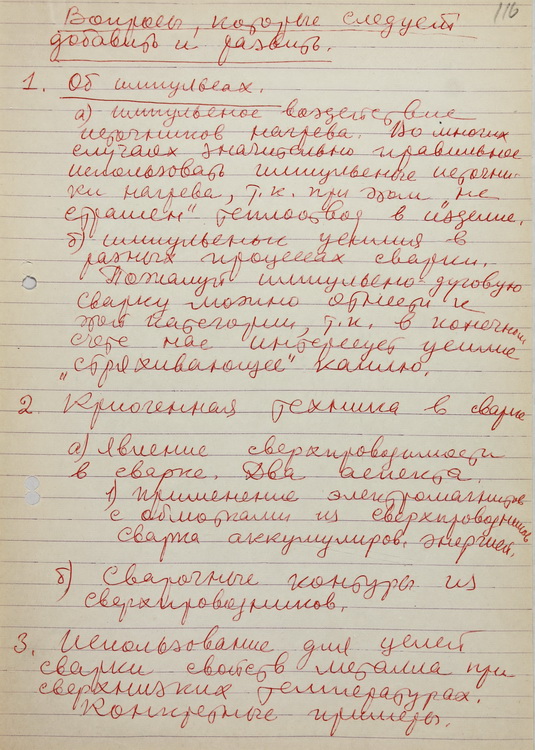 116
Вопросы, которые следует
добавить и развить.
1. Об импульсах.
а) импульсное воздействие
источников нагрева. Во многих
случаях значительно правильнее
использовать импульсные источни-
ки нагрева, т.к. при этом "не
страшен" теплоотвод в изделие.
б) импульсные усилия в
разных процессах сварки.
Пожалуй импульсно-дуговую
сварку можно отнести к
этой категории, т.к. в конечном
счете нас интересует усилие
"стряхивающее" каплю.
2. Криогенная техника в сварке
а) Явление сверхпроводимости
в сварке. Два аспекта.
1) применение электромагнитов
с обмотками из сверхпроводников
сварка аккумулиров. энергией.
б) Сварочные контуры из
сверхпроводников.
3. Использование для целей
сварки свойств металла при
сверхнизких температурах.
Конкретные примеры.